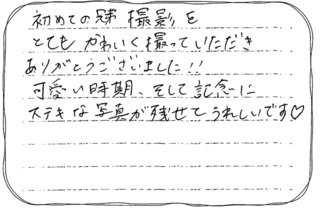 初めての兄弟撮影を
とてもかわいく撮っていただき
ありがとうございました!!
可愛い時期、そして記念に
ステキな写真が残せてうれしいです♡